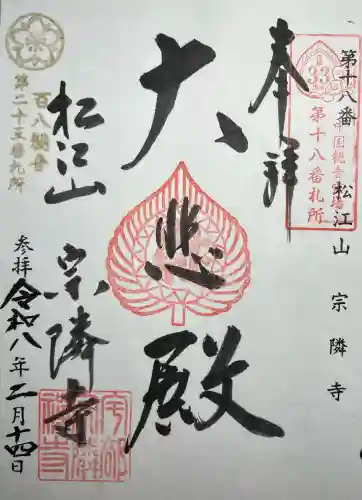 第十八番 松江山 宗隣寺
33
中国観音霊場
第十八番札所
奉拝
大悲殿
百八観音
第二十三番札所
松江山 宗隣寺
参拝 令和八年二月十四日